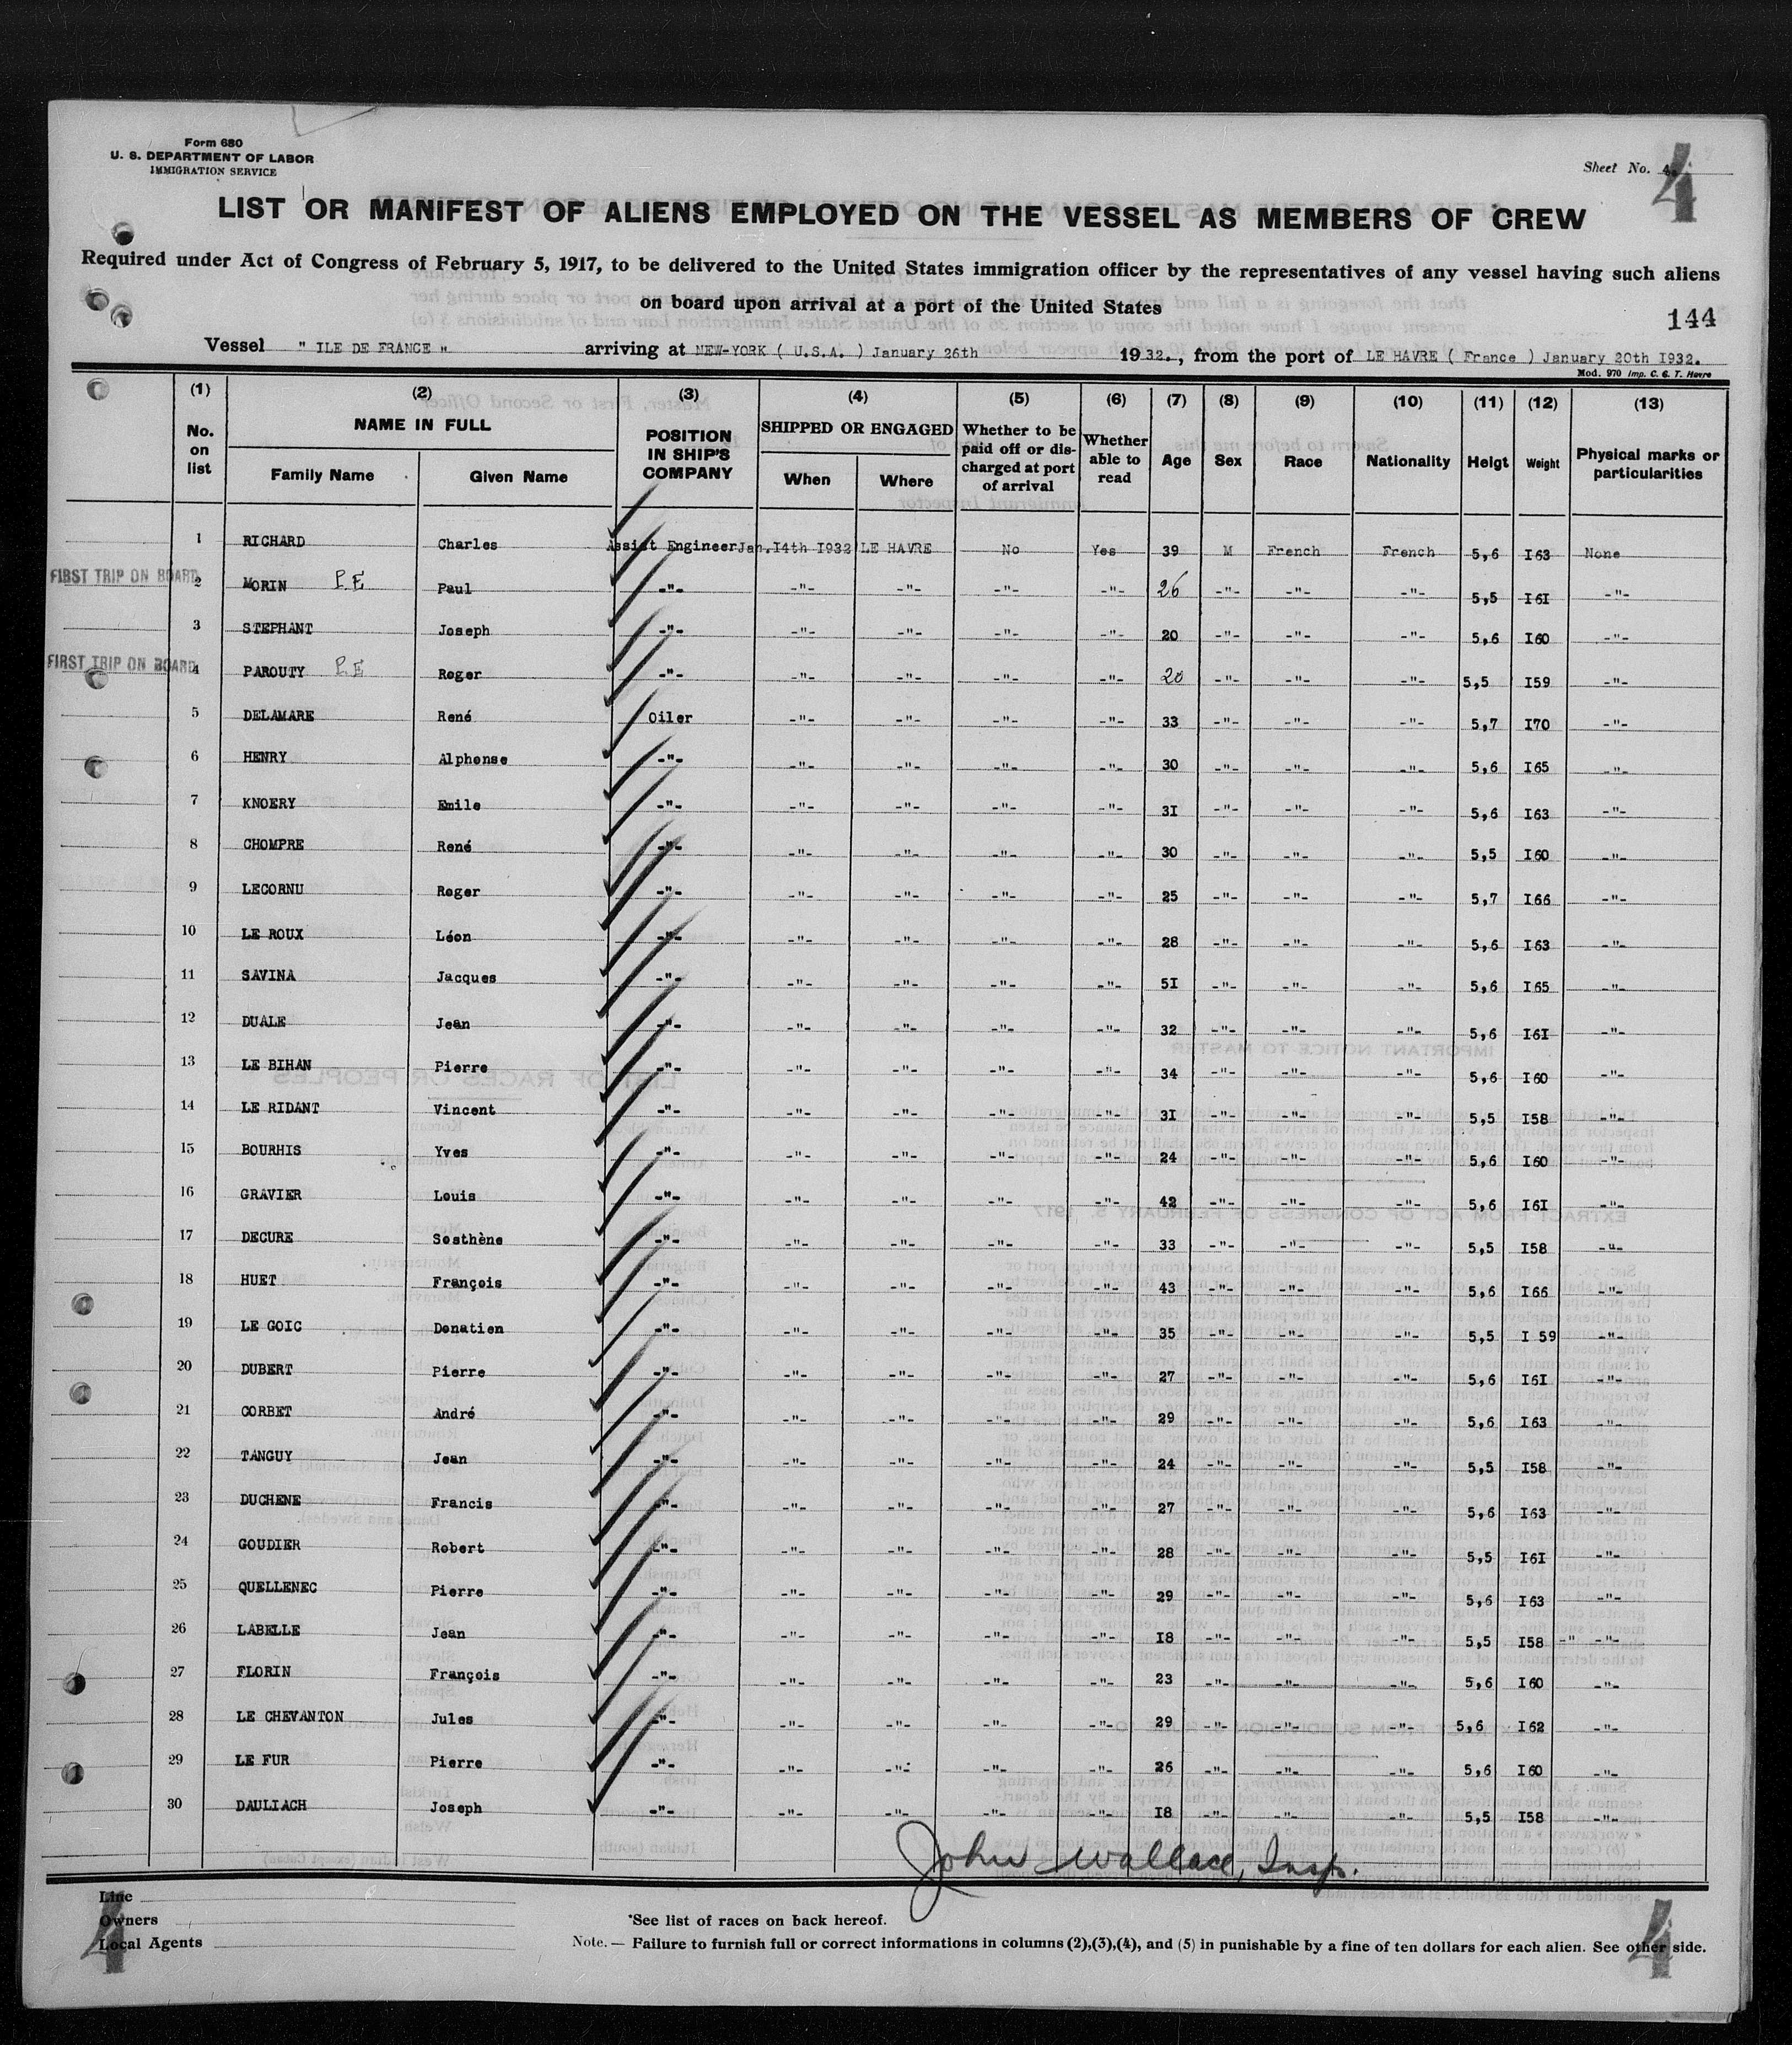 Form 680
U. S. DEPARTMENT OF LABOR
IMMIGRATION SERVICE
Sheet No. 4
4
LIST OR MANIFEST OF ALIENS EMPLOYED ON THE VESSEL AS MEMBERS OF CREW
Required under Act of Congress of February 5, 1917, to be delivered to the United States immigration officer by the representatives of any vessel having such aliens
on board upon arrival at a port of the United States
144
Vessel " ILE DE FRANCE " arriving at NEW-YORK ( U.S.A. ) January 26th 1932. , from the port of LE HAVRE ( France ) January 20th I932.
Mod. 970 Imp. C. G. T. Havre
(1) (2) (3) (4) (5) (6) (7) (8) (9) (10) (11) (12) (13)
No. on list NAME IN FULL Family Name Given Name POSITION IN SHIP'S COMPANY SHIPPED OR ENGAGED When Where Whether to be paid off or discharged at port of arrival Whether able to read Age Sex Race Nationality Heigt Weight Physical marks or particularities
1 RICHARD Charles Assist Engineer Jan.I4th I932 LE HAVRE No Yes 39 M French French 5,6 I63 None
FIRST TRIP ON BOARD 2 MORIN P.E Paul -"- -"- -"- -"- -"- 26 -"- -"- -"- 5,5 I6I -"-
3 STEPHANT Joseph -"- -"- -"- -"- -"- 20 -"- -"- -"- 5,6 I60 -"-
FIRST TRIP ON BOARD 4 PAROUTY P.E Roger -"- -"- -"- -"- -"- 20 -"- -"- -"- 5,5 I59 -"-
5 DELAMARE René Oiler -"- -"- -"- -"- 33 -"- -"- -"- 5,7 I70 -"-
6 HENRY Alphonse -"- -"- -"- -"- -"- 30 -"- -"- -"- 5,6 I65 -"-
7 KNOERY Emile -"- -"- -"- -"- -"- 3I -"- -"- -"- 5,6 I63 -"-
8 CHOMPRE René -"- -"- -"- -"- -"- 30 -"- -"- -"- 5,5 I60 -"-
9 LECORNU Roger -"- -"- -"- -"- -"- 25 -"- -"- -"- 5,7 I66 -"-
10 LE ROUX Léon -"- -"- -"- -"- -"- 28 -"- -"- -"- 5,6 I63 -"-
11 SAVINA Jacques -"- -"- -"- -"- -"- 5I -"- -"- -"- 5,6 I65 -"-
12 DUALE Jean -"- -"- -"- -"- -"- 32 -"- -"- -"- 5,6 I6I -"-
13 LE BIHAN Pierre -"- -"- -"- -"- -"- 34 -"- -"- -"- 5,6 I60 -"-
14 LE RIDANT Vincent -"- -"- -"- -"- -"- 3I -"- -"- -"- 5,5 I58 -"-
15 BOURHIS Yves -"- -"- -"- -"- -"- 24 -"- -"- -"- 5,6 I60 -"-
16 GRAVIER Louis -"- -"- -"- -"- -"- 42 -"- -"- -"- 5,6 I6I -"-
17 DECURE Sosthène -"- -"- -"- -"- -"- 33 -"- -"- -"- 5,5 I58 -"-
18 HUET François -"- -"- -"- -"- -"- 43 -"- -"- -"- 5,6 I66 -"-
19 LE GOIC Donatien -"- -"- -"- -"- -"- 35 -"- -"- -"- 5,5 I 59 -"-
20 DUBERT Pierre -"- -"- -"- -"- -"- 27 -"- -"- -"- 5,6 I6I -"-
21 CORBET André -"- -"- -"- -"- -"- 29 -"- -"- -"- 5,6 I63 -"-
22 TANGUY Jean -"- -"- -"- -"- -"- 24 -"- -"- -"- 5,5 I58 -"-
23 DUCHENE Francis -"- -"- -"- -"- -"- 27 -"- -"- -"- 5,6 I63 -"-
24 GOUDIER Robert -"- -"- -"- -"- -"- 28 -"- -"- -"- 5,5 I6I -"-
25 QUELLENEC Pierre -"- -"- -"- -"- -"- 29 -"- -"- -"- 5,6 I63 -"-
26 LABELLE Jean -"- -"- -"- -"- -"- I8 -"- -"- -"- 5,5 I58 -" -"-
27 FLORIN François -"- -"- -"- -"- -"- 23 -"- -"- -"- 5,6 I60 -"-
28 LE CHEVANTON Jules -"- -"- -"- -"- -"- 29 -"- -"- -"- 5,6 I62 -"-
29 LE FUR Pierre -"- -"- -"- -"- -"- 26 -"- -"- -"- 5,6 I60 -"-
30 DAULIACH Joseph -"- -"- -"- -"- -"- I8 -"- -"- -"- 5,5 I58 -"-
John Wallace, Insp.
Line
Owners
Local Agents
4
*See list of races on back hereof.
Note. — Failure to furnish full or correct informations in columns (2),(3),(4), and (5) in punishable by a fine of ten dollars for each alien. See other side.
4